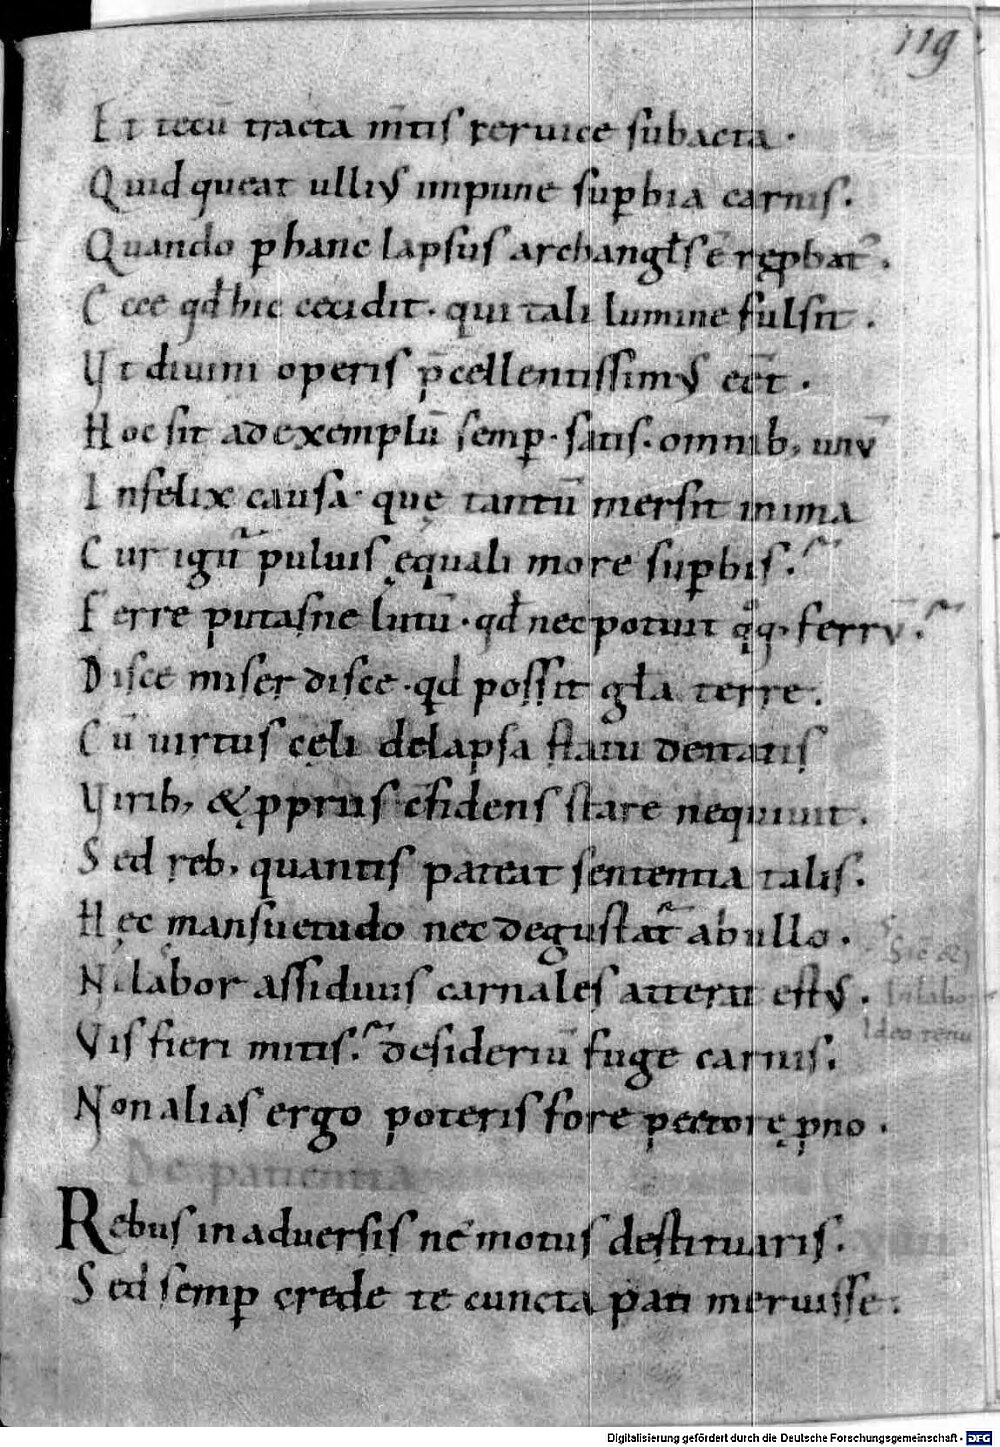 119
Et tecū tracta m̄tis ceruice subacta.
Quid queat ullis impune suꝑbia carnis.
Quando ꝑ hanc lapsus archangłs ē reꝑbat᷑.
Ecce qđ hic cecidit. qui tali lumine fulsit.
Vt diuini operis p̄cellentissimꝰ eēt.
Hoc sit ad exemplū semꝑ. satis. omnib; unū
Infelix causa quę tantū mersit inima
Cur igit᷑ puluis ęquali more suꝑbis.
Ferre putasne lutū. qđ nec potuit quoq; ferrū.
Disce miser disce. qđ possit gła terre.
Cū uirtus cęli delapsa statu deitatis
Virib; & ꝓpriis c̄fidens stare nequiuit.
Sed reb; quantis pateat sententia talis.
Hęc mansuetudo nec degustat᷑ ab ullo.
Ni labor assiduus carnales atterit estꝰ.
Vis fieri mitis. desideriū fuge carnis.
Non alias ergo poteris fore pectorę p̄no.
De patientia
Rebus in aduersis ne motus destituaris.
Sed semꝑ crede te cuncta pati meruisse.
Digitalisierung gefördert durch die Deutsche Forschungsgemeinschaft - DFG